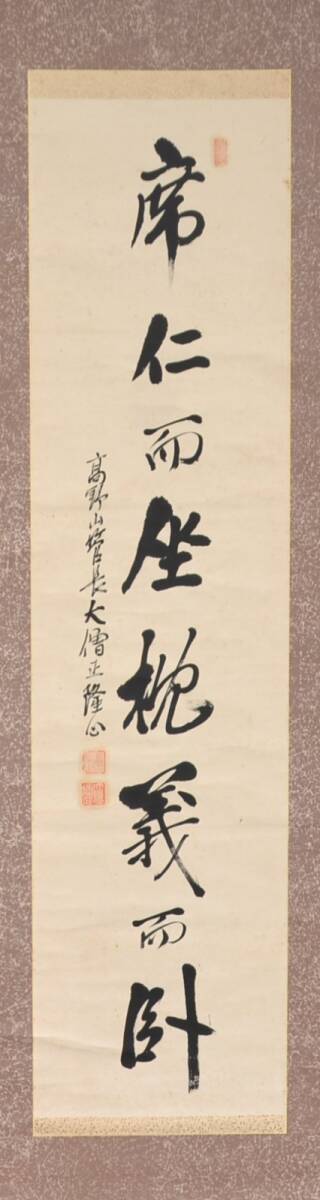 席仁而坐枕義而臥
高野山管長大僧正隆心